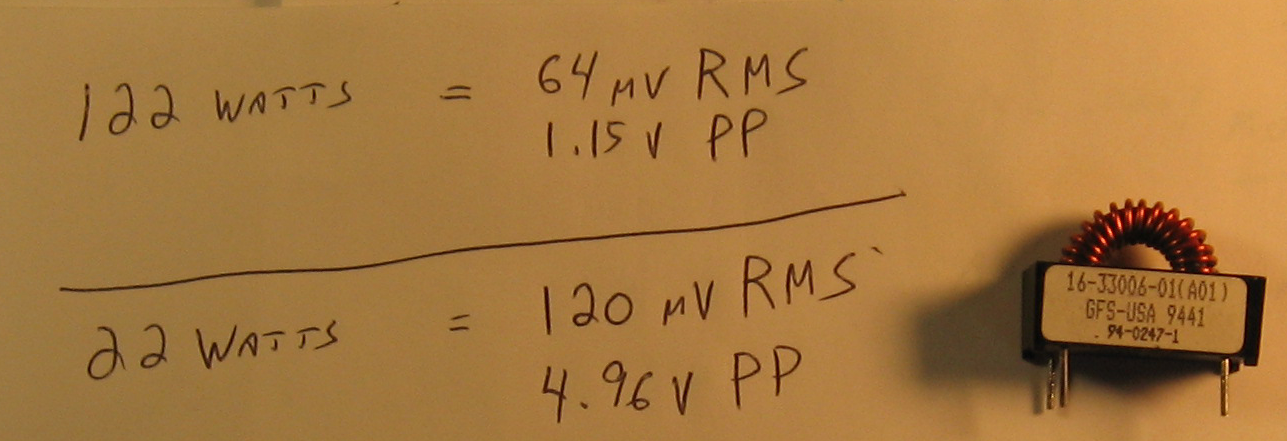 122 WATTS = 64 mV RMS
1.15 V PP
22 WATTS = 120 mV RMS
4.96 V PP
16-33006-01(A01)
GFS-USA 9441
94-0247-1